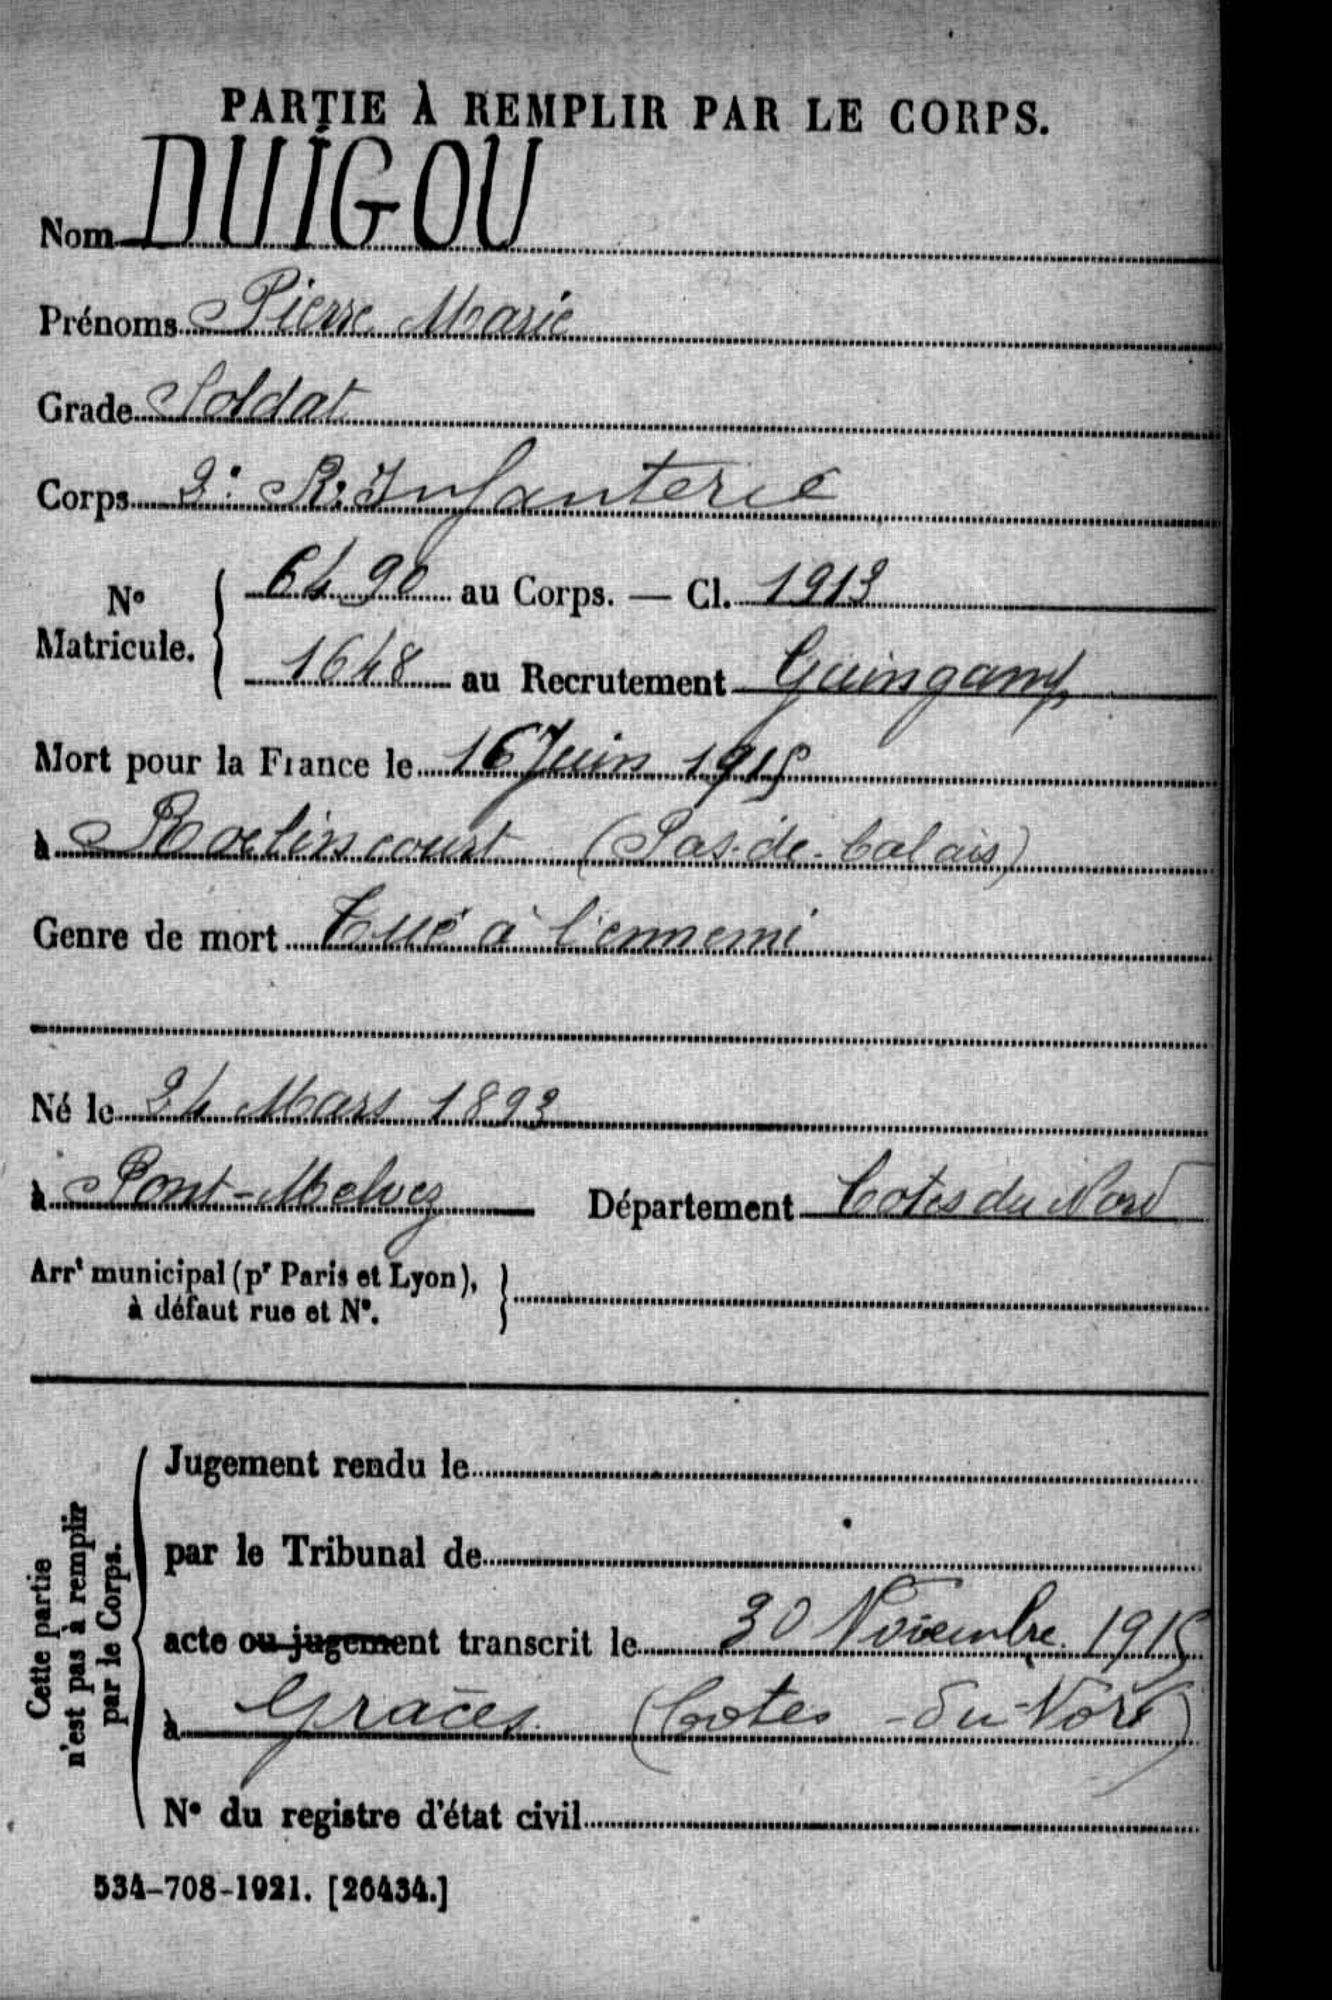 PARTIE À REMPLIR PAR LE CORPS.
Nom DUIGOU
Prénoms Pierre Marie
Grade Soldat
Corps 2e R. Infanterie
No Matricule. { 6490 au Corps. — Cl. 1913
1648 au Recrutement Guingamp
Mort pour la France le 16 Juin 1915
à Roclincourt (Pas-de-Calais)
Genre de mort Tué à l'ennemi
Né le 24 Mars 1893
à Pont-Melvez Département Cotes du Nord
Arrt municipal (pr Paris et Lyon), à défaut rue et No. }
Cette partie n'est pas à remplir par le Corps.
Jugement rendu le
par le Tribunal de
acte ou jugement transcrit le 30 Novembre 1915
à Graces (Cotes-du-Nord)
No du registre d'état civil
534-708-1921. [26434.]